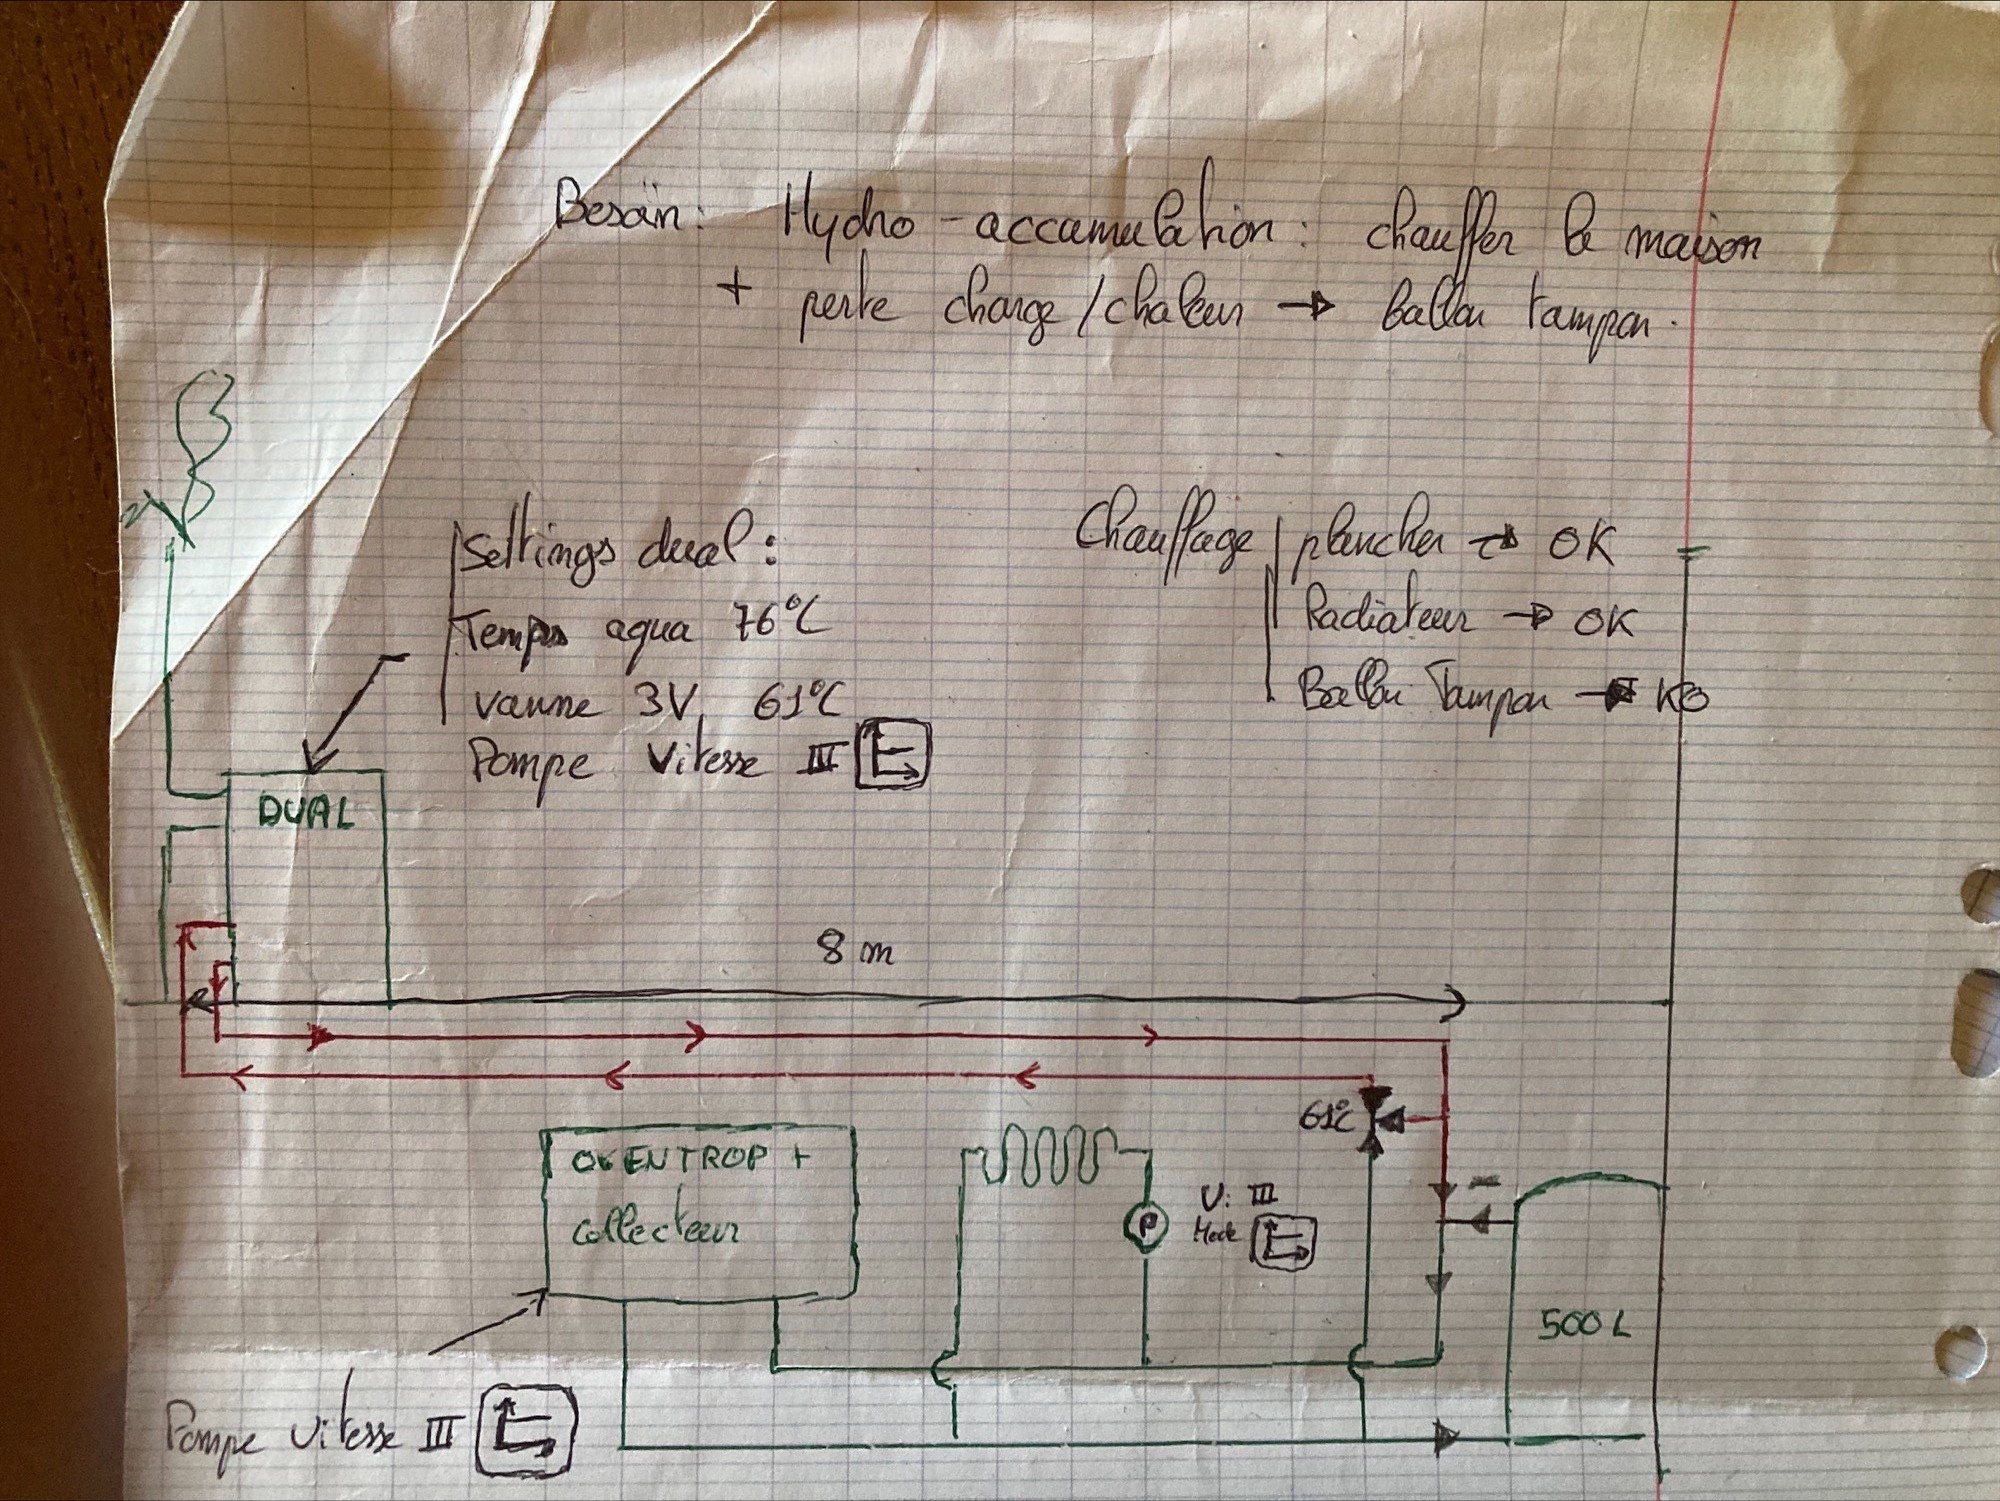 Besoin: Hydro-accumulation: chauffer la maison
+ perte charge/chaleur → ballon tampon.
Settings dual:
Temps aqua 76°C
vanne 3V 61°C
Pompe Vitesse III
Chauffage plancher → OK
Radiateur → OK
Ballon Tampon → KO
DUAL
8 m
61°C
OVENTROP +
collecteur
P
V: III
Mode
500 L
Pompe Vitesse III